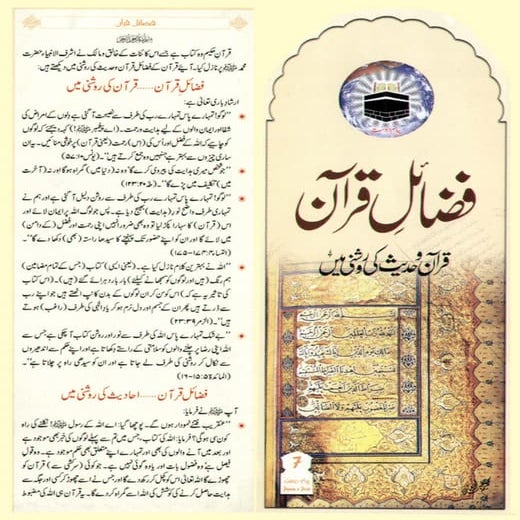 فضائلِ قرآن
قرآن و حدیث کی روشنی میں
7
فضائل قرآن
قرآن حکیم وہ کتاب ہے جسے اس کائنات کے خالق و مالک نے اشرف الانبیاء، حضرت
محمد ﷺ پر نازل کیا۔ آیئے قرآن کے فضائل قرآن وحدیث کی روشنی میں دیکھتے ہیں:
فضائل قرآن......قرآن کی روشنی میں
ارشاد باری تعالیٰ ہے:
"لوگو! تمہارے پاس تمہارے رب کی طرف سے نصیحت آ گئی ہے دلوں کے امراض کی
شفا اور ایمان والوں کے لیے ہدایت ورحمت۔ (اے پیغمبر ﷺ!) کہہ دیجئے کہ لوگوں
کو چاہیے کہ اللہ کے فضل اور اُس کی (اس) رحمت (یعنی قرآن) پر خوشی منائیں۔ یہ ان
ساری چیزوں سے بہتر ہے جنہیں وہ جمع کرتے ہیں"۔ (یونس ۱۰:۵۷)
"جو شخص میری ہدایت کی پیروی کرے گا وہ نہ (دنیا میں) گمراہ ہو گا اور نہ (آخرت
میں) تکلیف میں پڑے گا"۔ (طہ ۲۰:۱۲۳)
"لوگو! تمہارے پاس تمہارے رب کی طرف سے روشن دلیل آ گئی ہے اور ہم نے
تمہاری طرف واضح نور (ہدایت) بھیج دیا ہے۔ پس جو لوگ اللہ پر ایمان لائے اور
اس (قرآن) کا سہارا پکڑا تو وہ بھی ضرور انہیں اپنی رحمت اور فضل (کے دامن)
میں لائے گا اور ان کو اپنے حضور تک پہنچنے کا سیدھا راستہ (بھی) دکھا دے گا"۔
(النساء ۴:۱۷۴-۱۷۵)
"اللہ نے بہترین کلام نازل کیا ہے۔ (یعنی ایسی) کتاب (جس کے تمام مضامین)
ہم رنگ (ہیں اور لوگوں کو سمجھانے کے لیے) بار بار دہرائے گئے (ہیں)۔ (اس کتاب
کی تاثیر یہ ہے کہ) اس کو سن کر ان لوگوں کے بدن کانپ اٹھتے ہیں جو اپنے رب
سے ڈرتے ہیں پھر ان کے جسم اور دل نرم ہو کر یادِ الٰہی کی طرف (راغب) ہوتے
ہیں"۔ (الزمر ۳۹:۲۳)
"بے شک تمہارے پاس اللہ کی طرف سے نور اور روشن کتاب آ چکی ہے جس سے
اللہ اپنی رضا پر چلنے والوں کو سلامتی کے راستے دکھاتا ہے اور اپنے حکم سے اندھیروں
سے نکال کر روشنی کی طرف لے جاتا ہے اور ان کو سیدھی راہ پر چلاتا ہے"۔
(المائدہ ۵:۱۵-۱۶)
فضائل قرآن......احادیث کی روشنی میں
آپ ﷺ نے فرمایا:
"عنقریب فتنے نمودار ہوں گے۔ پوچھا گیا: اے اللہ کے رسول ﷺ! نکلنے کی راہ
کون سی ہو گی؟ فرمایا: اللہ کی کتاب، جس میں تم سے پہلے لوگوں کی خبر بھی موجود ہے
اور بعد میں آنے والوں کی بھی اور تمہارے اپنے متعلق بھی حکم موجود ہے۔ وہ قول
فیصل ہے، وہ فضول بات اور یاوہ گوئی نہیں ہے۔ جو کوئی (سرکش) اس (قرآن) کو
چھوڑے گا تو اللہ اس کو کچل کر رکھ دے گا اور جس نے اسے چھوڑ کر کسی اور جگہ سے
ہدایت حاصل کرنے کی کوشش کی اللہ اسے گمراہ کر دے گا۔ یہ قرآن ہی اللہ کی مضبوط